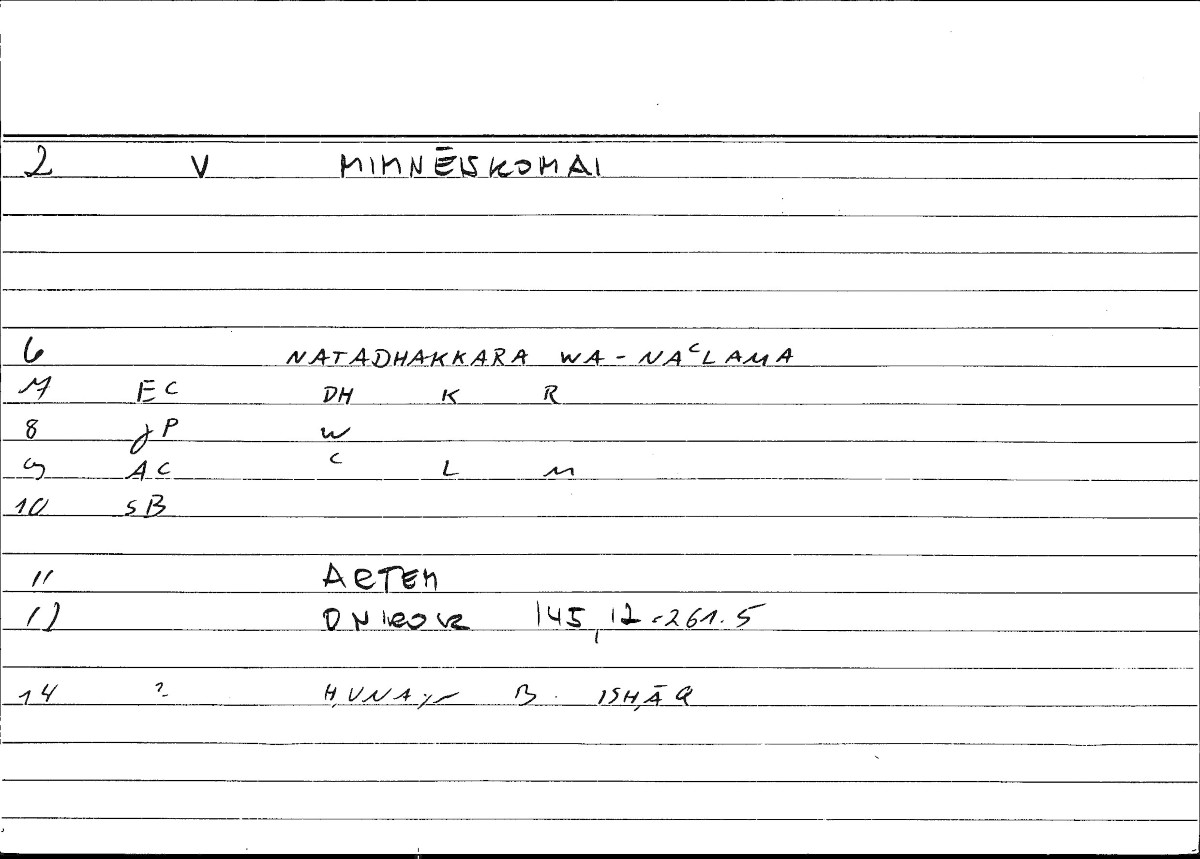 2 V MIMNĒISKOMAI
6 NATADHAKKARA WA-NAᶜLAMA
7 EC DH K R
8 JP W
9 AC ᶜ L M
10 SB
11 ARTEM
12 ONIROCR 145,12-261.5
14 ? ḤUNAYN B. ISḤĀQ